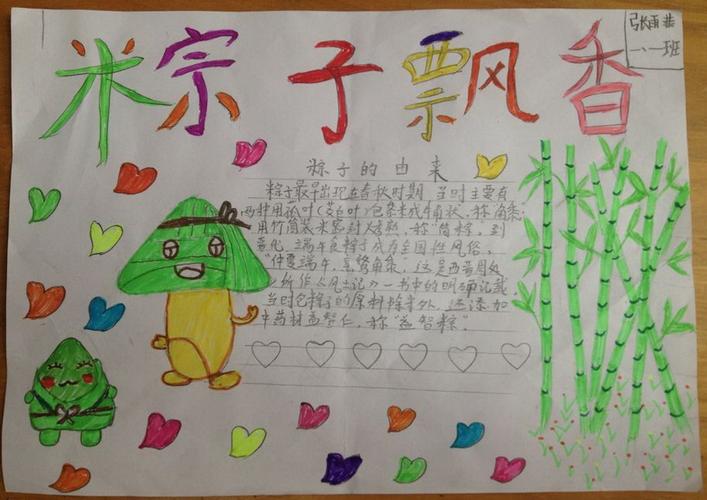 粽子飘香
张雨
一、一班
粽子的由来
粽子最早出现在春秋时期,当时主要有
两种用菰叶(茭白叶)包黍米成牛角状,称"角黍;
用竹筒装米密封烤熟,称"筒粽,到
晋代,端午食粽子成为全国性风俗。
"仲夏端午,烹鹜角黍,这是西晋周处
所作《风土记》一书中的明确记载。
当时包粽子的原料除米外,还添加
中药材益智仁,称"益智粽"。